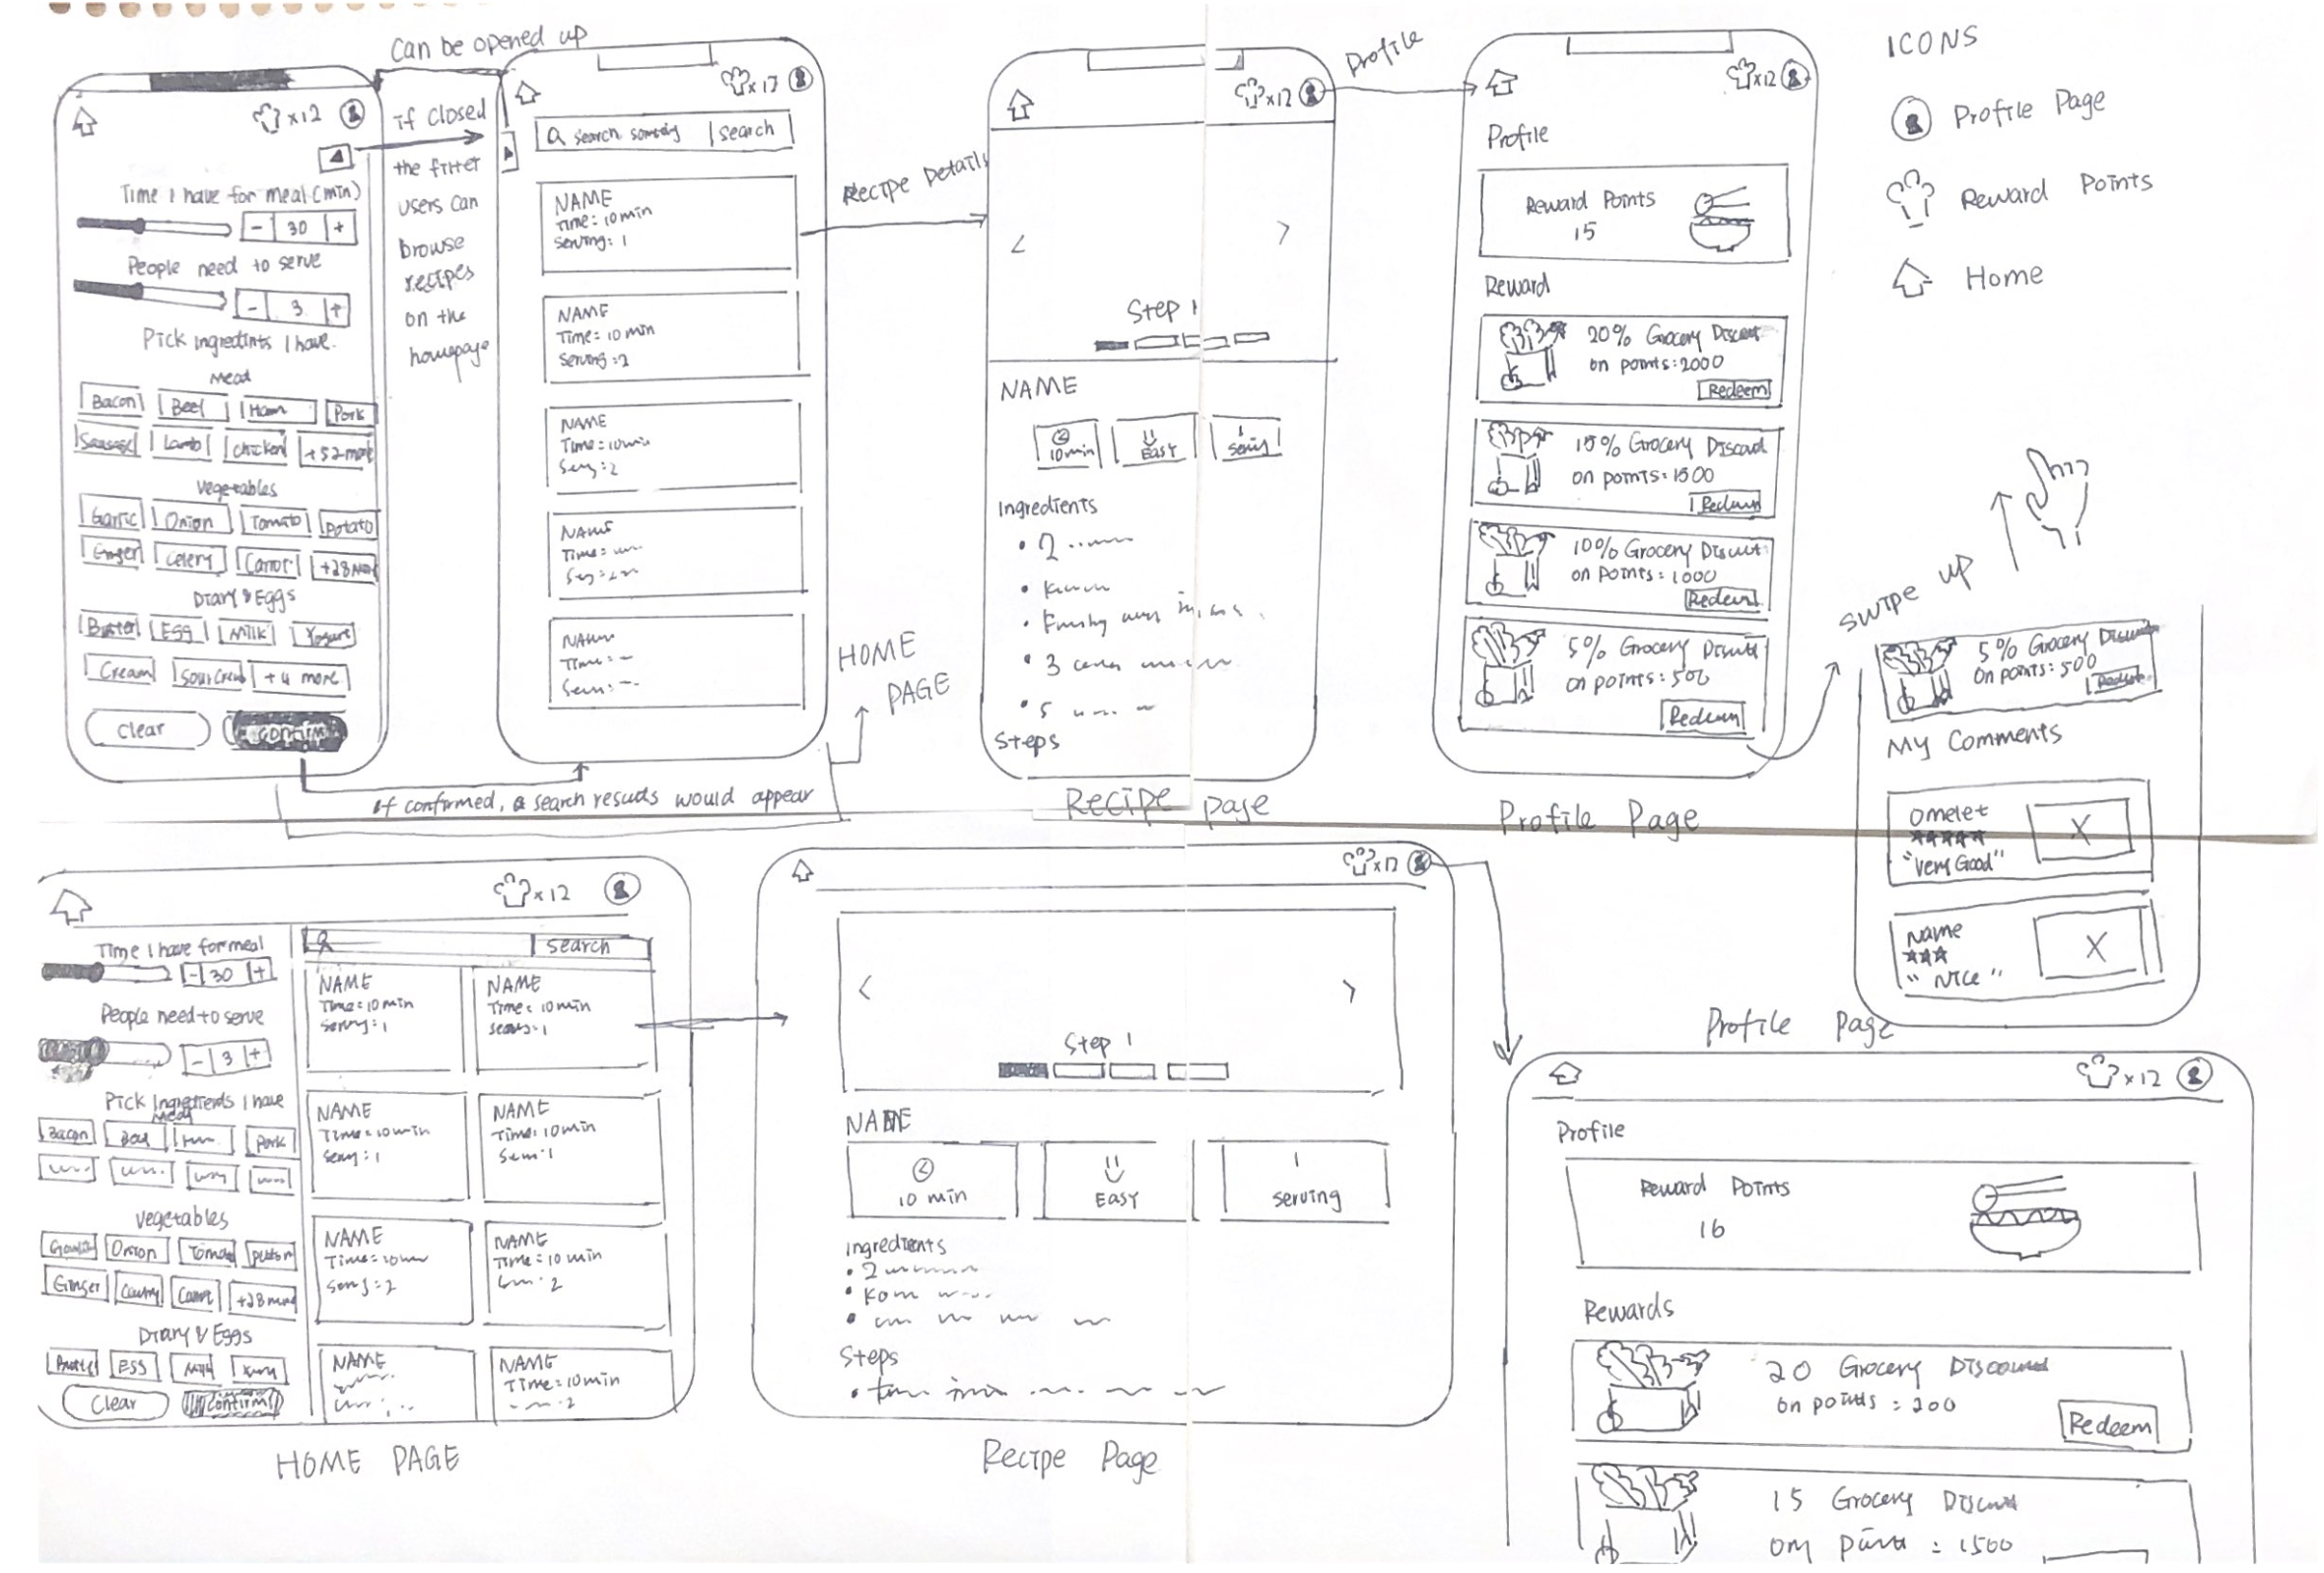 Can be opened up
x12
if closed
the filter
users can
browse
recipes
on the
homepage
Time I have for meal (min)
- 30 +
People need to serve
- 3 +
Pick Ingredints I have.
Meat
Bacon Beef Ham Pork
Sausage Lamb Chicken +52 more
Vegetables
Garlic Onion Tomato Potato
Ginger Celery Carrot +28 more
Diary & Eggs
Butter Egg Milk Yogurt
Cream Sour Cream +4 more
Clear Confirm
If confirmed, a search resuds would appear
HOME
PAGE
x12
search somthing search
NAME
Time: 10 min
Serving: 1
NAME
Time: 10 min
Serving: 2
NAME
Time: 10 min
NAME
Time:
NAME
Time:
Recipe Details
x12
< >
Step 1
NAME
10 min Easy 1 serving
Ingredients
• 2
•
•
• 3
• 5
Steps
Recipe page
Profile
x12
Profile
Reward Points
15
Reward
20% Grocery Discount
on points: 2000
Redeem
15% Grocery Discount
on points: 1500
Redeem
10% Grocery Discount
on points: 1000
Redeem
5% Grocery Discount
on points: 500
Redeem
Profile Page
ICONS
Profile Page
Reward Points
Home
swipe up
5% Grocery Discount
on points: 500
Redeem
My Comments
Omelet
★★★★★
"Very Good"
X
Name
★★★
"Nice"
X
x12
Time I have for meal
- 30 +
People need to serve
- 3 +
Pick Ingredients I have
Meat
Bacon Beef Ham Pork
Vegetables
Garlic Onion Tomato
Ginger Carrot +28 more
Diary & Eggs
Egg Milk
Clear Confirm
search
NAME
Time: 10 min
Serving: 1
NAME
Time: 10 min
NAME
Time: 10 min
NAME
Time: 10 min
NAME
Time: 10 min
NAME
Time: 10 min
NAME
NAME
Time: 10 min
HOME PAGE
x12
< >
Step 1
NAME
10 min
Easy
1
serving
Ingredients
• 2
•
•
Steps
•
Recipe Page
Profile Page
x12
Profile
Reward Points
16
Rewards
20 Grocery Discount
on points: 200
Redeem
15 Grocery Discount
: 1500